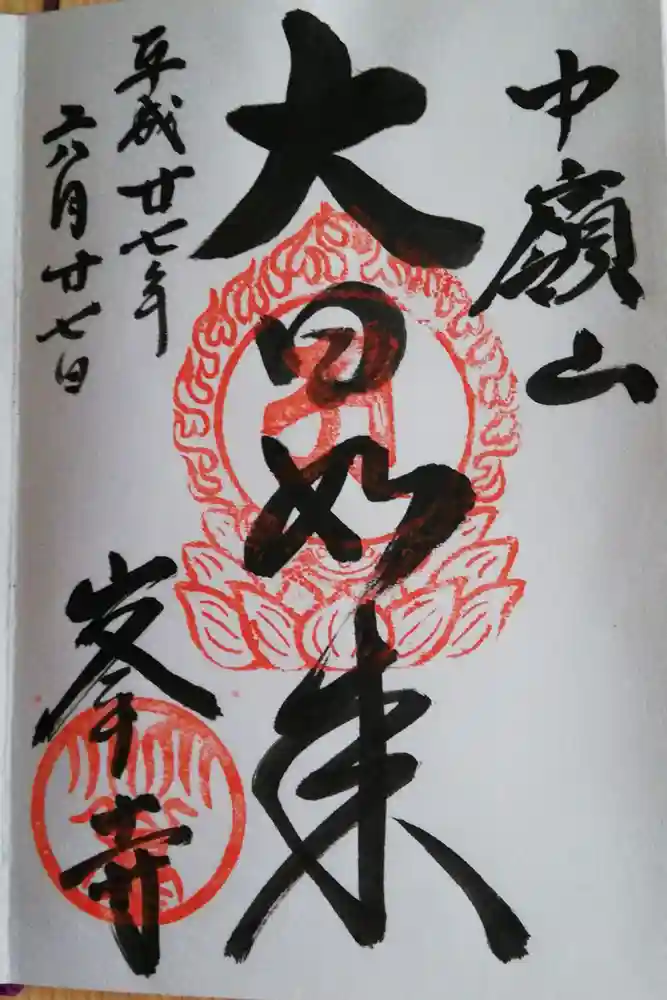 中嶺山
大日如来
平成廿七年
六月廿七日
峯寺